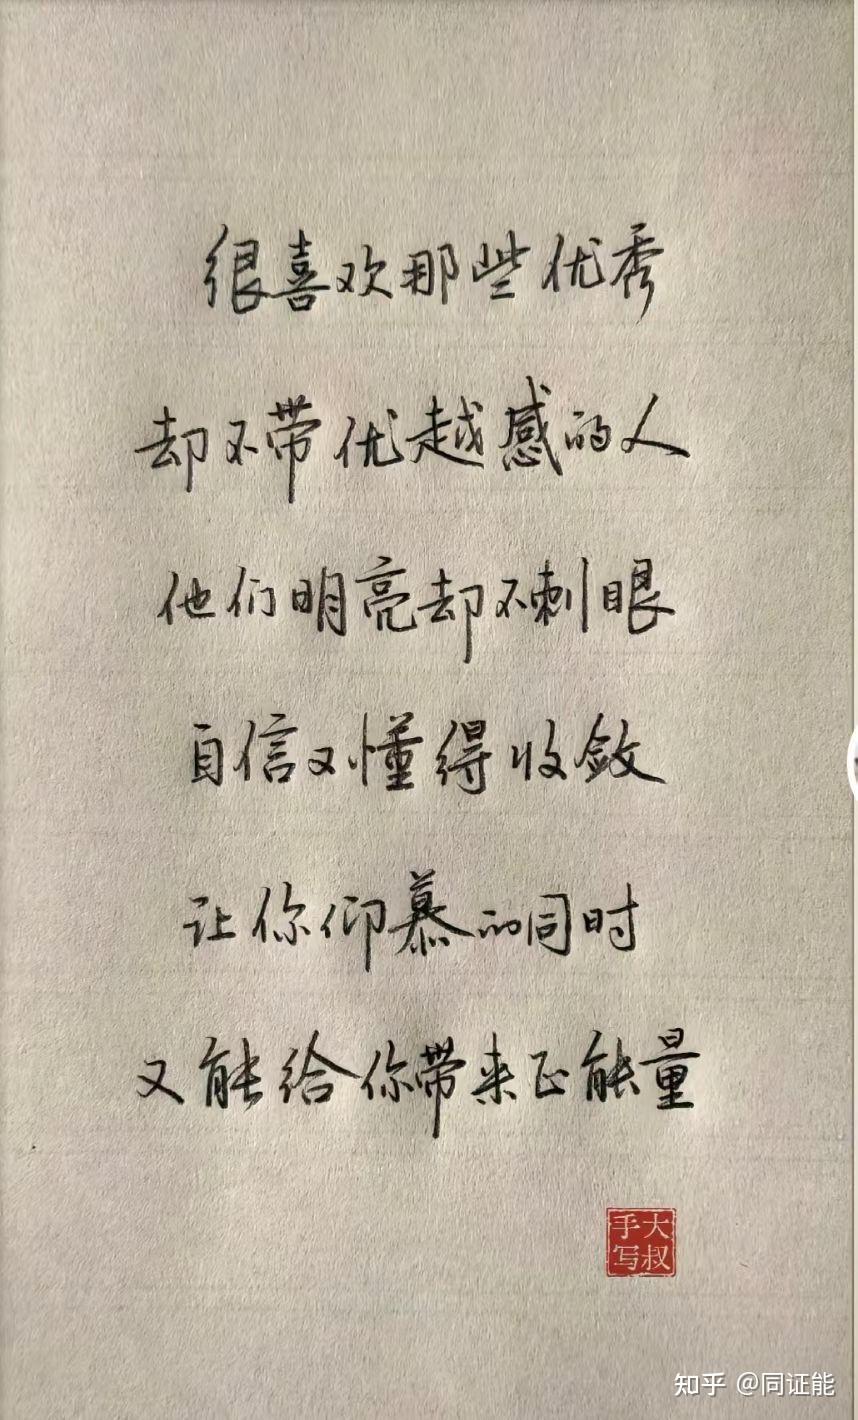 很喜欢那些优秀
却不带优越感的人
他们明亮却不刺眼
自信又懂得收敛
让你仰慕的同时
又能给你带来正能量
大叔
手写
知乎 @同证能